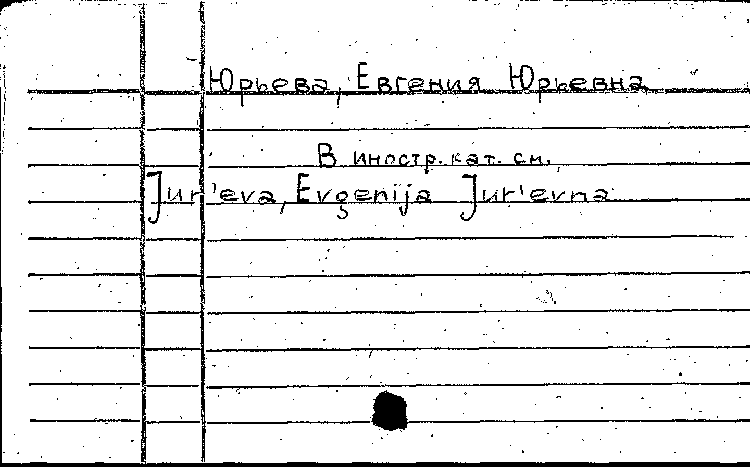 Юрьева, Евгения Юрьевна
В иностр. кат. см.
Jur'eva, Evgenija Jur'evna